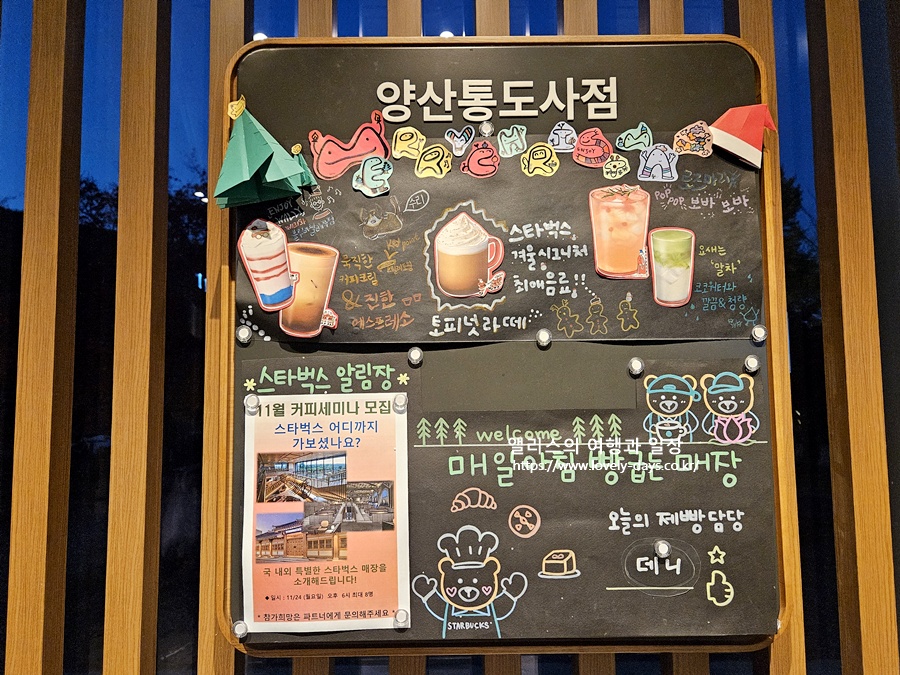 양산통도사점
ENJOY
수리
묵직한
커피크림
& 진한
에스프레소
스타벅스
겨울시그니처
최애음료!!
토피넛라떼
POP POP 뽀바 뽀바
요새는
'말차'
코코워터와
깔끔&청량
스타벅스 알림장
11월 커피세미나 모집
스타벅스 어디까지
가보셨나요?
국 내외 특별한 스타벅스 매장을
소개해드립니다!
◆ 일시 : 11/24 (월요일) 오후 6시 최대 8명
* 참가희망은 파트너에게 문의해주세요 *
welcome
앨리스의 여행과 일상
https://www.lovely-days.co.kr/
매일아침 빵굽는매장
오늘의 제빵담당
데니
STARBUCKS